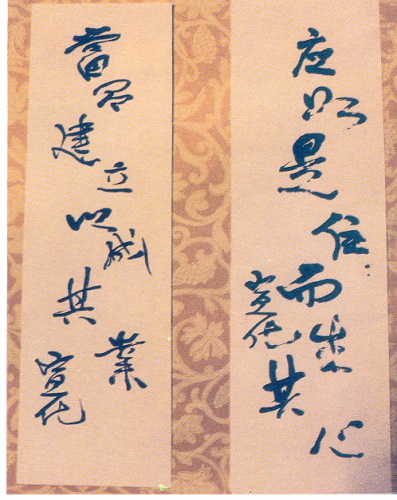 应如是住而生其心
宣化
當建立以成其業
宣化